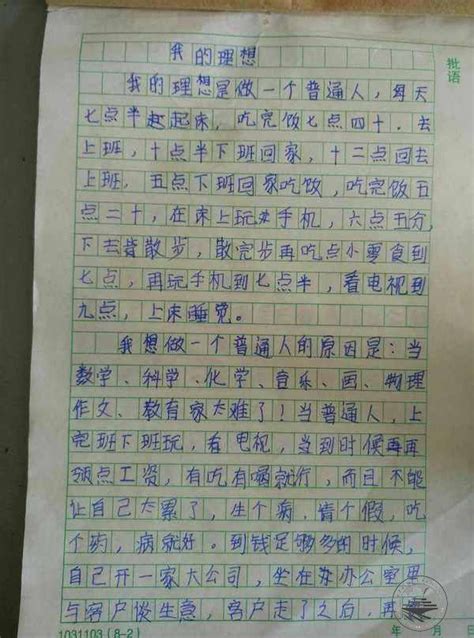 批语
我的理想
我的理想是做一个普通人，每天
七点半起起床，吃完饭七点四十，去
上班，十点半下班回家，十二点回去
上班，五点下班回家吃饭，吃完饭五
点二十，在床上玩手机，六点五分，
下去散步，散完步再吃点小零食到
七点，再玩手机到七点半，看电视到
九点，上床睡觉。
我想做一个普通人的原因是：当
数学、科学、化学、音乐、画、物理
作文、教育家太难了！当普通人，上
完班下班玩，看电视，当到时候再再
领点工资，有吃有喝就行，而且不能
让自己太累了，生个病，请个假，吃
个药，病就好。到钱足够多的时候，
自己开一家大公司，坐在办公室里
与客户谈生意，客户走了之后，再
1031103(8-2)
年 月 日